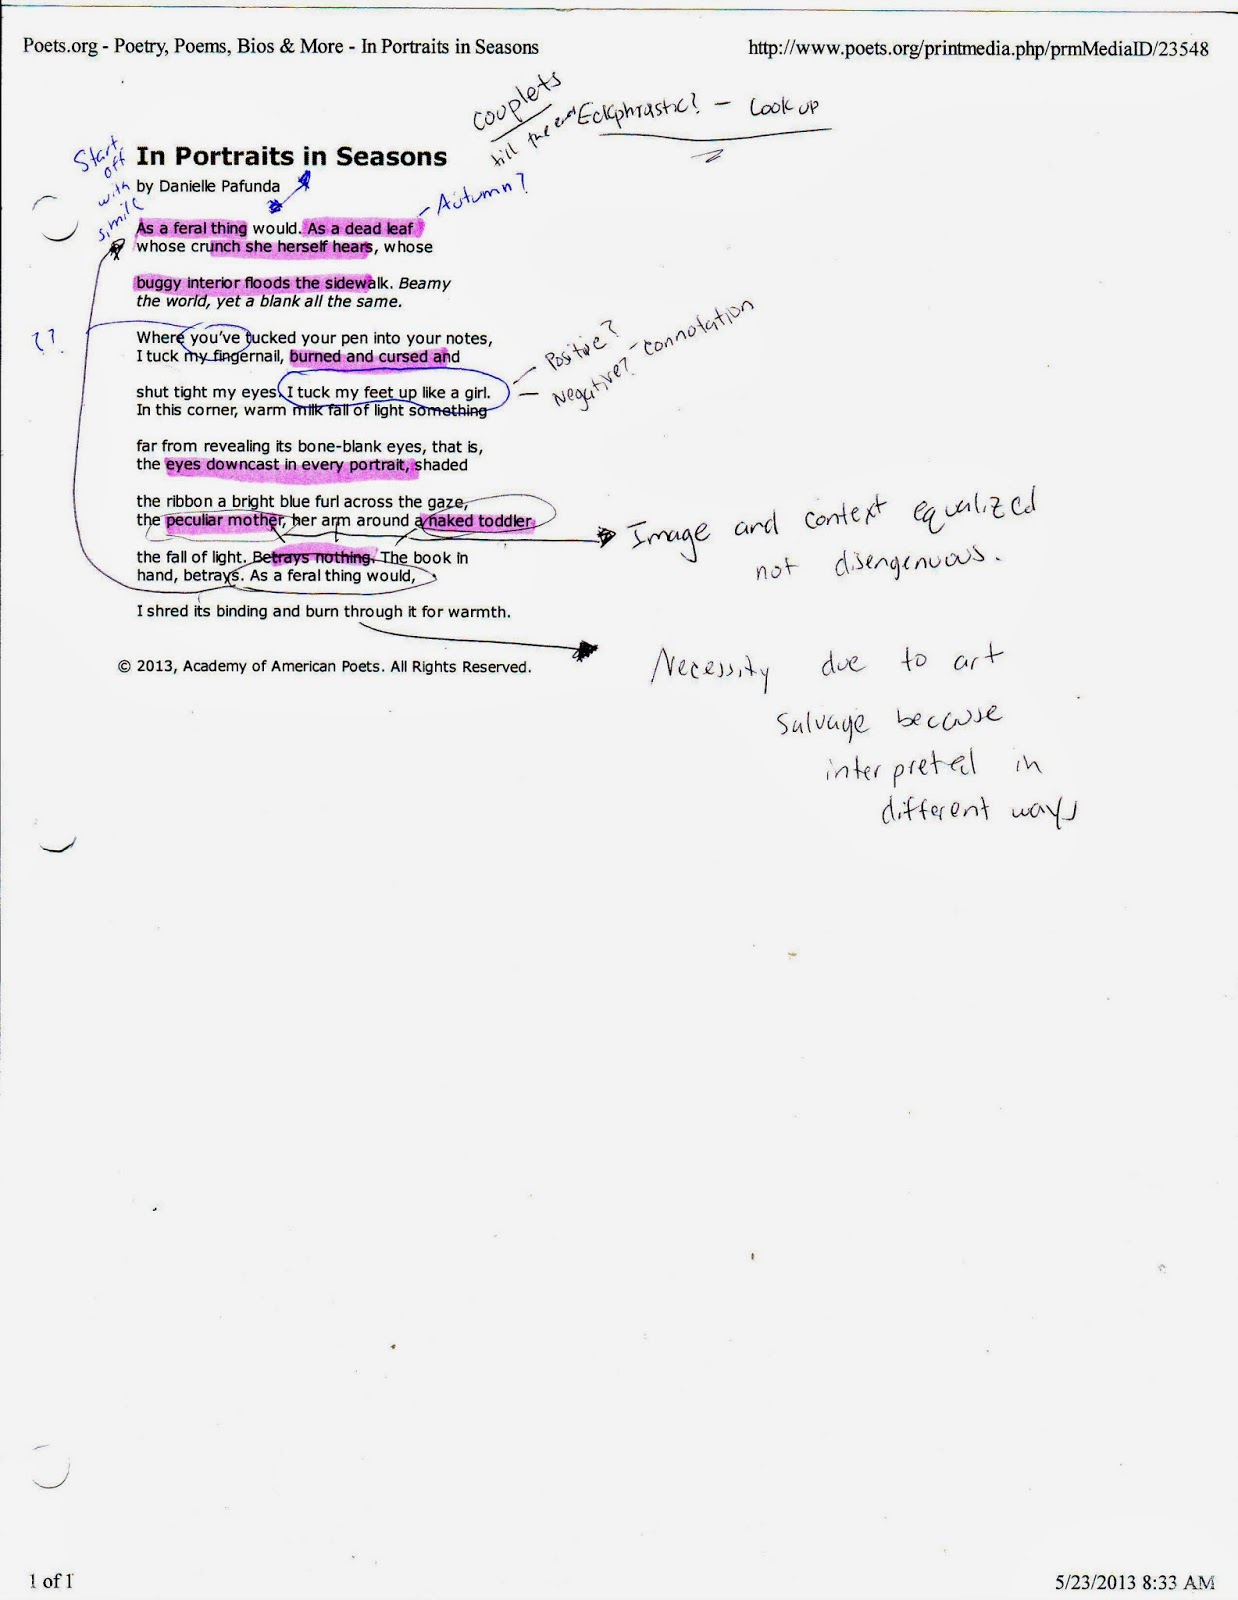 Poets.org - Poetry, Poems, Bios & More - In Portraits in Seasons
http://www.poets.org/printmedia.php/prmMediaID/23548
couplets
till the end
Eckphrastic? - Look up
Start
off
with
simile
In Portraits in Seasons
by Danielle Pafunda
- Autumn?
As a feral thing would. As a dead leaf
whose crunch she herself hears, whose
buggy interior floods the sidewalk. Beamy
the world, yet a blank all the same.
??
Where you've tucked your pen into your notes,
I tuck my fingernail, burned and cursed and
- Positive?
- Negative? - connotation
shut tight my eyes. I tuck my feet up like a girl.
In this corner, warm milk fall of light something
far from revealing its bone-blank eyes, that is,
the eyes downcast in every portrait, shaded
the ribbon a bright blue furl across the gaze,
the peculiar mother, her arm around a naked toddler,
Image and context equalized
not disengenuous.
the fall of light. Betrays nothing. The book in
hand, betrays. As a feral thing would,
I shred its binding and burn through it for warmth.
Necessity due to art
salvage because
interpreted in
different ways
© 2013, Academy of American Poets. All Rights Reserved.
1 of 1
5/23/2013 8:33 AM